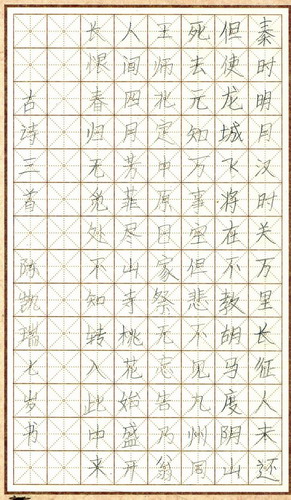 秦时明月汉时关万里长征人未还
但使龙城飞将在不教胡马度阴山
死去元知万事空但悲不见九州同
王师北定中原日家祭无忘告乃翁
人间四月芳菲尽山寺桃花始盛开
长恨春归无觅处不知转入此中来
古诗三首 陈凯瑞七岁书